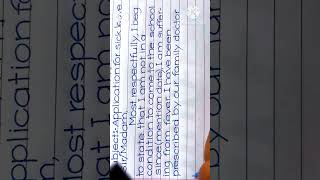 bject:- Application for sick leave.
ir/Madam,
Most respectfully, I beg
to state that I am not in a
condition to come to the school
since (mention date). I am suffer-
ing from fever. I have been
prescribed by our family doctor